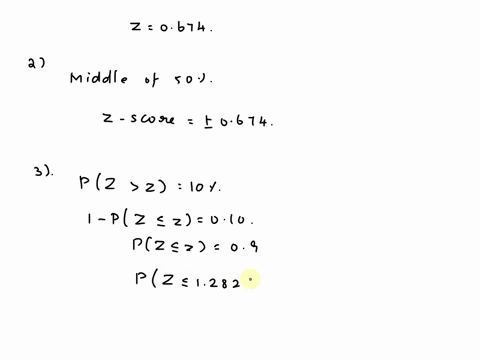 Z = 0.674.
2)
Middle of 50%.
Z-score = ± 0.674.
3).
P(Z > z) = 10%.
1 - P(Z ≤ z) = 0.10.
P(Z ≤ z) = 0.9
P(Z ≤ 1.282